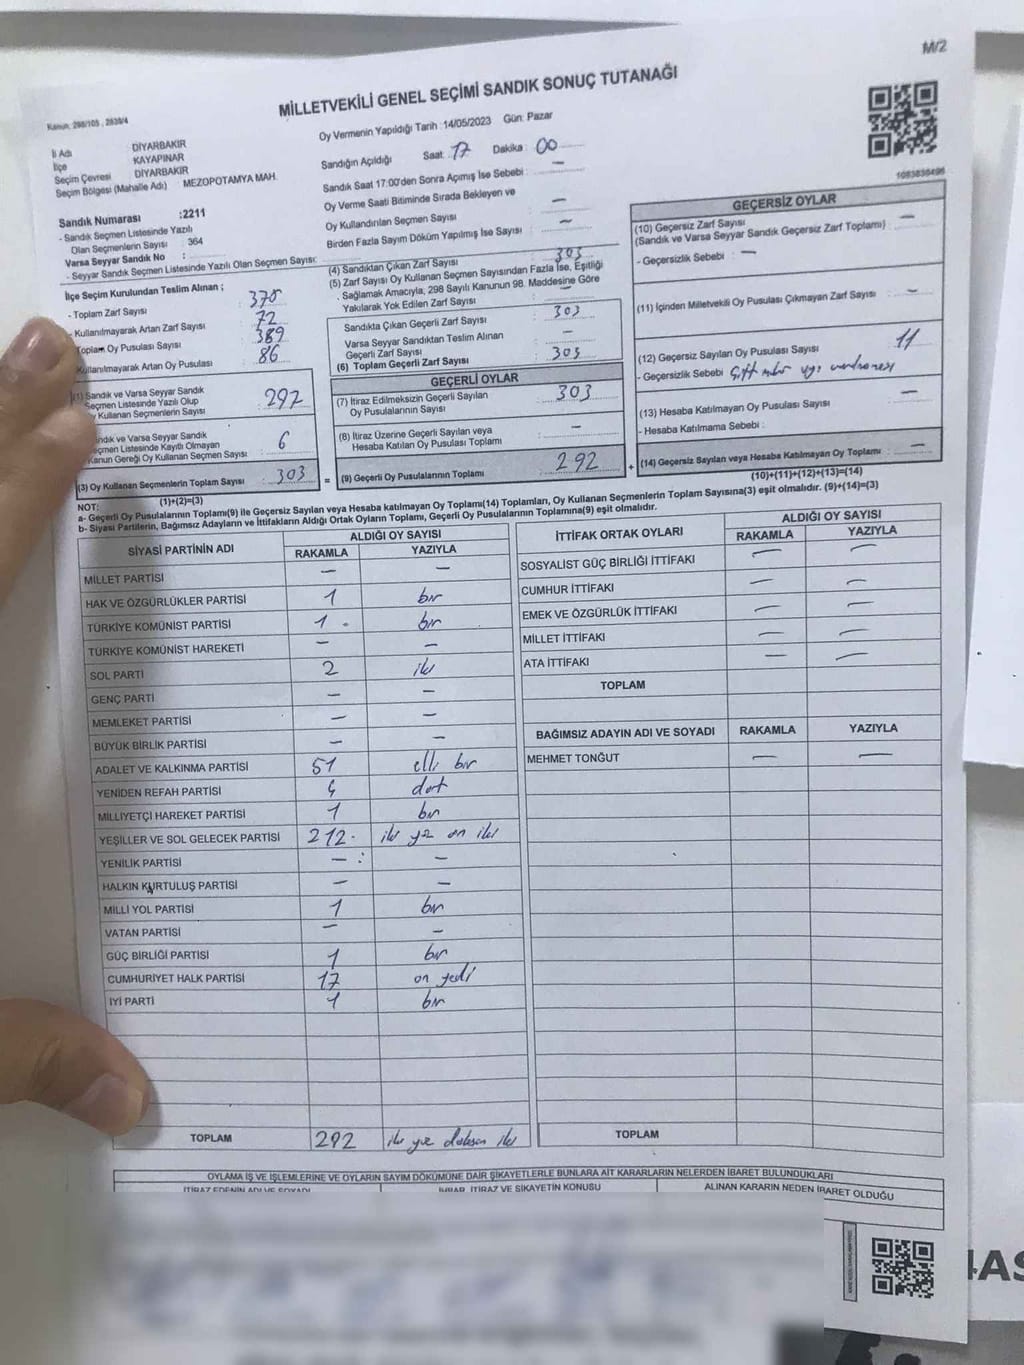 M/2
MİLLETVEKİLİ GENEL SEÇİMİ SANDIK SONUÇ TUTANAĞI
Kanun: 298/105 , 2839/4
Oy Vermenin Yapıldığı Tarih :14/05/2023 Gün: Pazar
İl Adı DİYARBAKIR
İlçe KAYAPINAR
Seçim Çevresi DİYARBAKIR
Seçim Bölgesi (Mahalle Adı) MEZOPOTAMYA MAH.
Sandığın Açıldığı Saat: 17 Dakika : 00
Sandık Saat 17:00'den Sonra Açımış İse Sebebi : —
Oy Verme Saati Bitiminde Sırada Bekleyen ve
Oy Kullandırılan Seçmen Sayısı : —
Birden Fazla Sayım Döküm Yapılmış İse Sayısı : —
1083838496
Sandık Numarası :2211
- Sandık Seçmen Listesinde Yazılı
Olan Seçmenlerin Sayısı : 364
Varsa Seyyar Sandık No :
- Seyyar Sandık Seçmen Listesinde Yazılı Olan Seçmen Sayısı:
İlçe Seçim Kurulundan Teslim Alınan ;
- Toplam Zarf Sayısı : 375
- Kullanılmayarak Artan Zarf Sayısı : 72
Toplam Oy Pusulası Sayısı : 389
Kullanılmayarak Artan Oy Pusulası : 86
(1) Sandık ve Varsa Seyyar Sandık
Seçmen Listesinde Yazılı Olup
Oy Kullanan Seçmenlerin Sayısı : 297
Sandık ve Varsa Seyyar Sandık
Seçmen Listesinde Kayıtlı Olmayan
Kanun Gereği Oy Kullanan Seçmen Sayısı : 6
(3) Oy Kullanan Seçmenlerin Toplam Sayısı : 303
(1)+(2)=(3)
(4) Sandıktan Çıkan Zarf Sayısı : 303
(5) Zarf Sayısı Oy Kullanan Seçmen Sayısından Fazla İse, Eşitliği
Sağlamak Amacıyla, 298 Sayılı Kanunun 98. Maddesine Göre
Yakılarak Yok Edilen Zarf Sayısı : —
Sandıkta Çıkan Geçerli Zarf Sayısı : 303
Varsa Seyyar Sandıktan Teslim Alınan
Geçerli Zarf Sayısı : —
(6) Toplam Geçerli Zarf Sayısı : 303
GEÇERLİ OYLAR
(7) İtiraz Edilmeksizin Geçerli Sayılan
Oy Pusulalarının Sayısı : 303
(8) İtiraz Üzerine Geçerli Sayılan veya
Hesaba Katılan Oy Pusulası Toplamı : —
= (9) Geçerli Oy Pusulalarının Toplamı : 292
GEÇERSİZ OYLAR
(10) Geçersiz Zarf Sayısı : —
(Sandık ve Varsa Seyyar Sandık Geçersiz Zarf Toplamı)
- Geçersizlik Sebebi : —
(11) İçinden Milletvekili Oy Pusulası Çıkmayan Zarf Sayısı : —
(12) Geçersiz Sayılan Oy Pusulası Sayısı : 11
- Geçersizlik Sebebi :
(13) Hesaba Katılmayan Oy Pusulası Sayısı : —
- Hesaba Katılmama Sebebi :
+ (14) Geçersiz Sayılan veya Hesaba Katılmayan Oy Toplamı : —
(10)+(11)+(12)+(13)=(14)
NOT:
a- Geçerli Oy Pusulalarının Toplamı(9) ile Geçersiz Sayılan veya Hesaba katılmayan Oy Toplamı(14) Toplamları, Oy Kullanan Seçmenlerin Toplam Sayısına(3) eşit olmalıdır. (9)+(14)=(3)
b- Siyasi Partilerin, Bağımsız Adayların ve İttifakların Aldığı Ortak Oyların Toplamı, Geçerli Oy Pusulalarının Toplamına(9) eşit olmalıdır.
SİYASİ PARTİNİN ADI ALDIĞI OY SAYISI
RAKAMLA YAZIYLA
MİLLET PARTİSİ — —
HAK VE ÖZGÜRLÜKLER PARTİSİ 1 bir
TÜRKİYE KOMÜNİST PARTİSİ 1 bir
TÜRKİYE KOMÜNİST HAREKETİ — —
SOL PARTİ 2 iki
GENÇ PARTİ — —
MEMLEKET PARTİSİ — —
BÜYÜK BİRLİK PARTİSİ — —
ADALET VE KALKINMA PARTİSİ 51 elli bir
YENİDEN REFAH PARTİSİ 4 dört
MİLLİYETÇİ HAREKET PARTİSİ 1 bir
YEŞİLLER VE SOL GELECEK PARTİSİ 212 iki yüz on iki
YENİLİK PARTİSİ — —
HALKIN KURTULUŞ PARTİSİ — —
MİLLİ YOL PARTİSİ 1 bir
VATAN PARTİSİ — —
GÜÇ BİRLİĞİ PARTİSİ 1 bir
CUMHURİYET HALK PARTİSİ 17 on yedi
İYİ PARTİ 1 bir
TOPLAM 292 iki yüz doksan iki
İTTİFAK ORTAK OYLARI ALDIĞI OY SAYISI
RAKAMLA YAZIYLA
SOSYALİST GÜÇ BİRLİĞİ İTTİFAKI — —
CUMHUR İTTİFAKI — —
EMEK VE ÖZGÜRLÜK İTTİFAKI — —
MİLLET İTTİFAKI — —
ATA İTTİFAKI — —
TOPLAM
BAĞIMSIZ ADAYIN ADI VE SOYADI RAKAMLA YAZIYLA
MEHMET TONĞUT — —
TOPLAM
OYLAMA İŞ VE İŞLEMLERİNE VE OYLARIN SAYIM DÖKÜMÜNE DAİR ŞİKAYETLERLE BUNLARA AİT KARARLARIN NELERDEN İBARET BULUNDUKLARI
İTİRAZ EDENİN ADI VE SOYADI İHBAR, İTİRAZ VE ŞİKAYETİN KONUSU ALINAN KARARIN NEDEN İBARET OLDUĞU